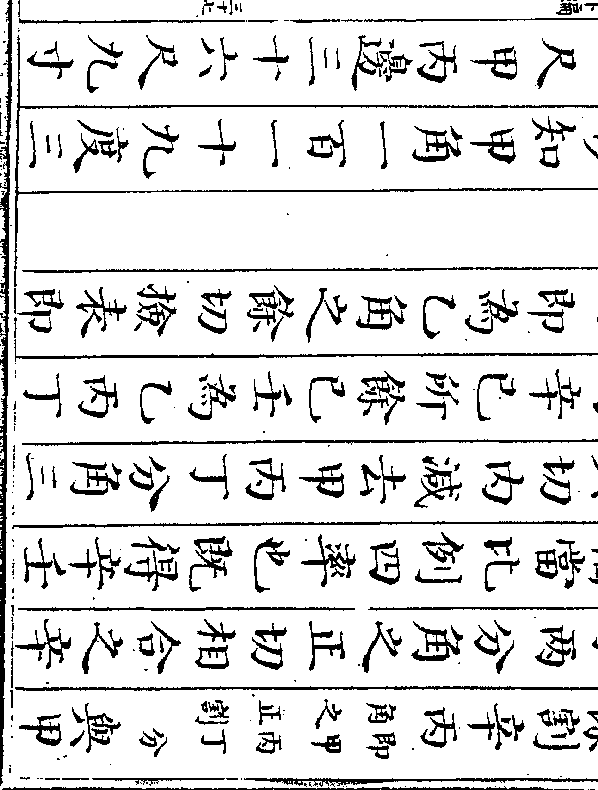 割辛丙即甲丙丁分角之正割與甲
兩分角之正切相合之辛
當比例四率也既得辛壬
切内減去甲丙丁分角三
辛己所餘己壬為乙丙丁
即為乙角之餘切檢表即
知甲角一百一十九度三
尺甲丙邊三十六尺九寸
下編
三十七